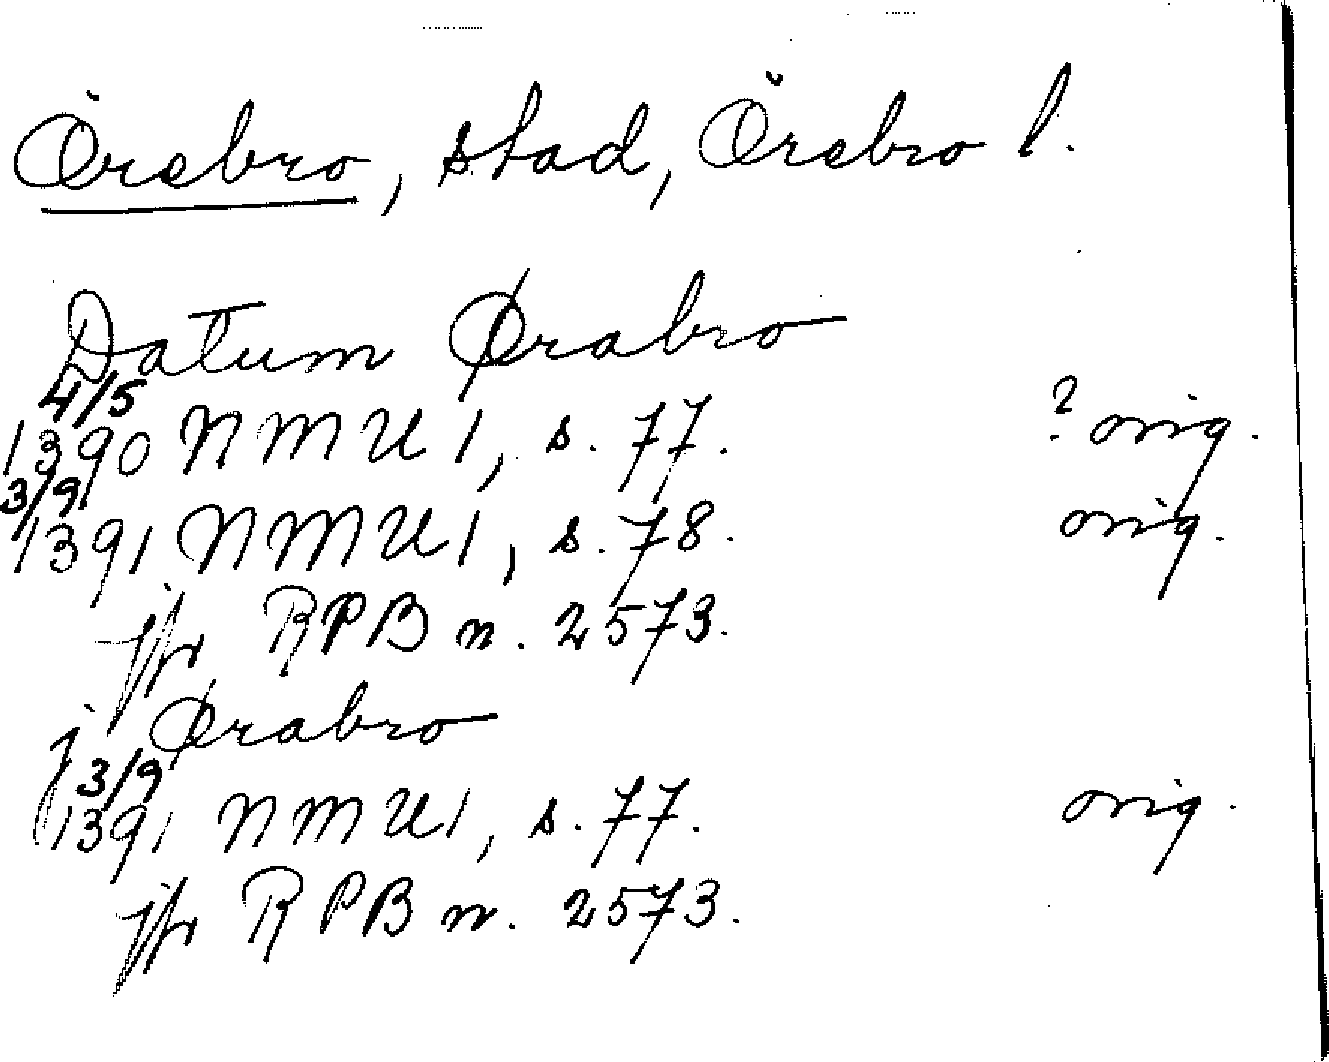 Örebro, stad, Örebro l.
Datum Ørabro
4/5
1390 NMU 1, s. 77. ? orig.
3/9
1391 NMU 1, s. 78. orig.
jfr RPB n. 2573.
j Ørabro
3/9
1391 NMU 1, s. 77. orig.
jfr RPB n. 2573.